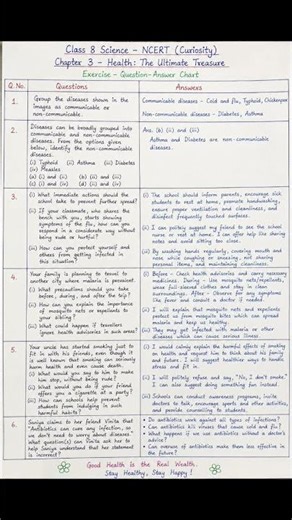 Class 8 Science - NCERT (Curiosity)
Chapter 3 - Health: The Ultimate Treasure
Exercise - Question-Answer Chart
Q. No.
Questions
Answers
1.
Group the diseases shown in the
images as communicable or
non-communicable.
Communicable diseases - Cold and flu, Typhoid, Chickenpox
Non-communicable diseases - Diabetes, Asthma
2.
Diseases can be broadly grouped
into communicable and non-
communicable diseases. From the options
given below, identify the non-communicable
diseases.
(i) Typhoid (ii) Asthma (iii) Diabetes
(iv) Measles
(a) (i) and (ii) (b) (ii) and (iii)
(c) (i) and (iv) (d) (ii) and (iv)
Ans. (b) (ii) and (iii)
Asthma and Diabetes are non-communicable
diseases.
3.
(i) What immediate actions should the
school take to prevent further spread?
(ii) If your classmate, who shares the
bench with you, starts showing
symptoms of the flu, how can you
respond in a considerate way without
being rude or hurtful?
(iii) How can you protect yourself and
others from getting infected in
this situation?
(i) The school should inform parents, encourage sick
students to rest at home, promote handwashing,
ensure proper ventilation and cleanliness, and
disinfect frequently touched surfaces.
(ii) I can politely suggest my friend to see the school
nurse or rest at home. I can offer help like sharing
notes and avoid sitting too close.
(iii) By washing hands regularly, covering mouth and
nose while coughing or sneezing, not sharing
personal items, and maintaining cleanliness.
4.
Your family is planning to travel to
another city where malaria is prevalent.
(i) What precautions should you take
before, during, and after the trip?
(ii) How can you explain the importance
of mosquito nets or repellents to
your sibling?
(iii) What could happen if travellers
ignore health advisories in such areas?
(i) Before - Check health advisories and carry necessary
medicines. During - Use mosquito nets/repellents,
wear full-sleeved clothes and stay in clean
surroundings. After - Observe for any symptoms
like fever and consult a doctor if needed.
(ii) I will explain that mosquito nets and repellents
protect us from mosquito bites which can spread
malaria and keep us healthy.
(iii) They may get infected with malaria or other
diseases which can cause serious illness.
5.
Your uncle has started smoking just to
fit in with his friends, even though it
is well known that smoking can seriously
harm health and even cause death.
(i) What would you say to him to make
him stop, without being rude?
(ii) What would you do if your friend
offers you a cigarette at a party?
(iii) How can schools help prevent
students from indulging in such
harmful habits?
(i) I would calmly explain the harmful effects of smoking
on health and request him to think about his family
and future. I will suggest healthier ways to handle
stress and fit in.
(ii) I will politely refuse and say, "No, I don't smoke."
I can also suggest doing something fun instead.
(iii) Schools can conduct awareness programs, invite
doctors to talk, encourage sports and other activities,
and provide counselling to students.
6.
Saniya claims to her friend Vinita that
"Antibiotics can cure any infection, so
we don't need to worry about diseases."
What question(s) can Vinita ask her to
help Saniya understand that her statement
is incorrect?
• Do antibiotics work against all types of infections?
• Can antibiotics kill viruses that cause cold and flu?
• What happens if we use antibiotics without a doctor's
advice?
• Can overuse of antibiotics make them less effective in
the future?
Good Health is the Real Wealth.
Stay Healthy, Stay Happy!